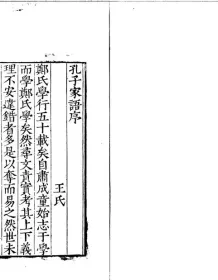 孔子家語序
王氏
鄭氏學行五十載矣自肅成童始志于學
而學鄭氏學矣然尋文責實考其上下義
理不安違錯者多是以奪而易之然世未